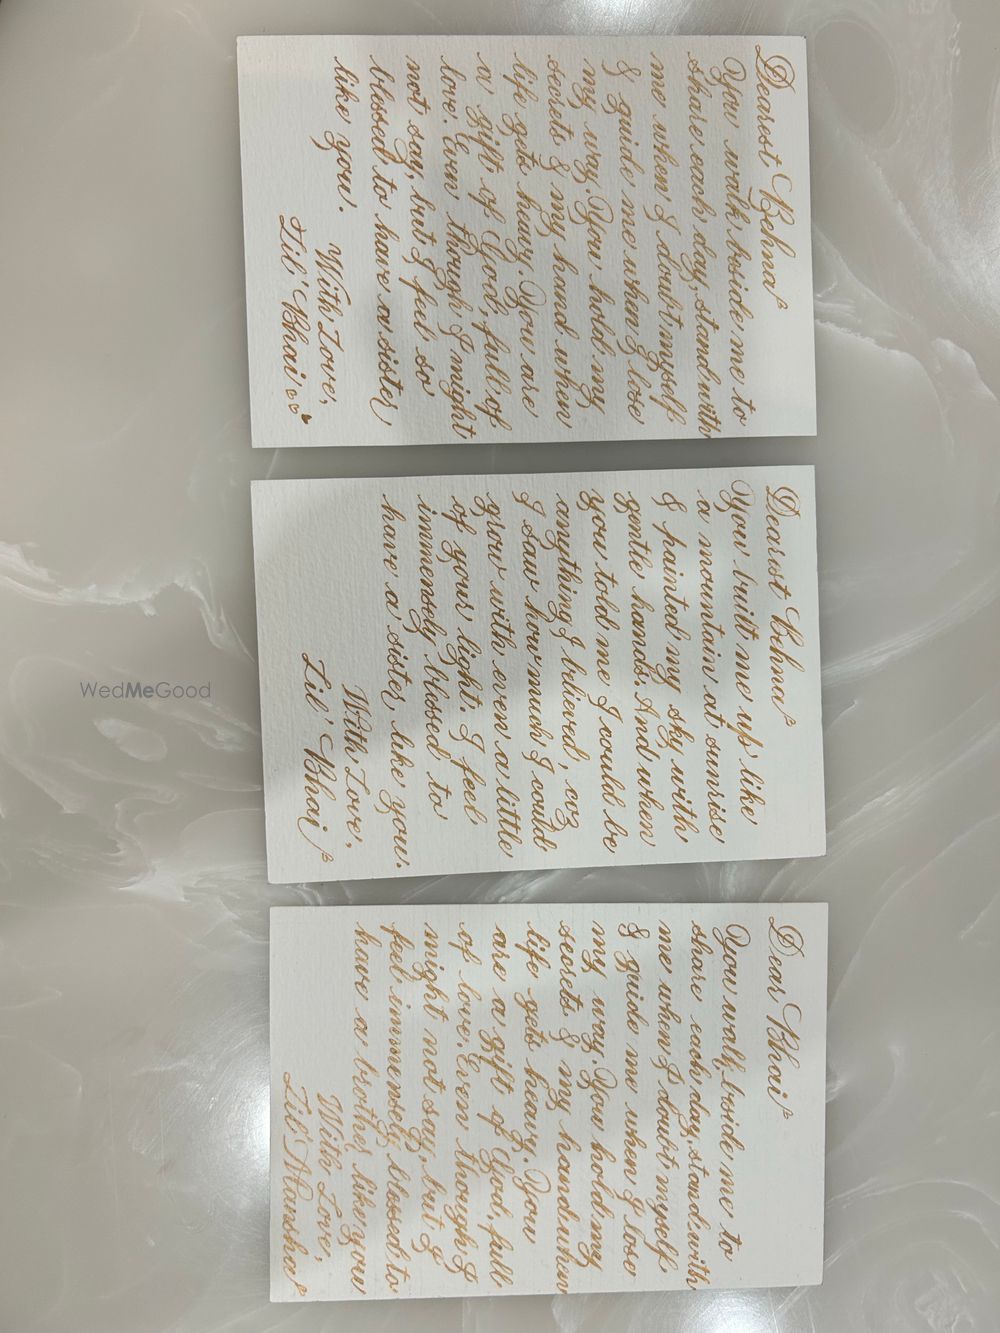 Dearest Behna
You walk beside me to
share each day, stand with
me when I doubt myself
& guide me when I lose
my way. You hold my
secrets & my hand when
life gets heavy. You are
a gift of God, full of
love. Even though I might
not say, but I feel so
blessed to have a sister
like you.
With Love,
Lil' Bhai
Dearest Behna
You built me up like
a mountain at sunrise
& painted my sky with
gentle hands. And when
you told me I could be
anything I believed, coz
I saw how much I could
grow with even a little
of your light. I feel
immensely blessed to
have a sister like you.
With Love,
Lil' Bhai
Dear Bhai
You walk beside me to
share each day, stand with
me when I doubt myself
& guide me when I lose
my way. You hold my
secrets & my hand when
life gets heavy. You
are a gift of God, full
of love. Even though I
might not say, but I
feel immensely blessed to
have a brother like you
With Love,
Lil' Mansha
WedMeGood